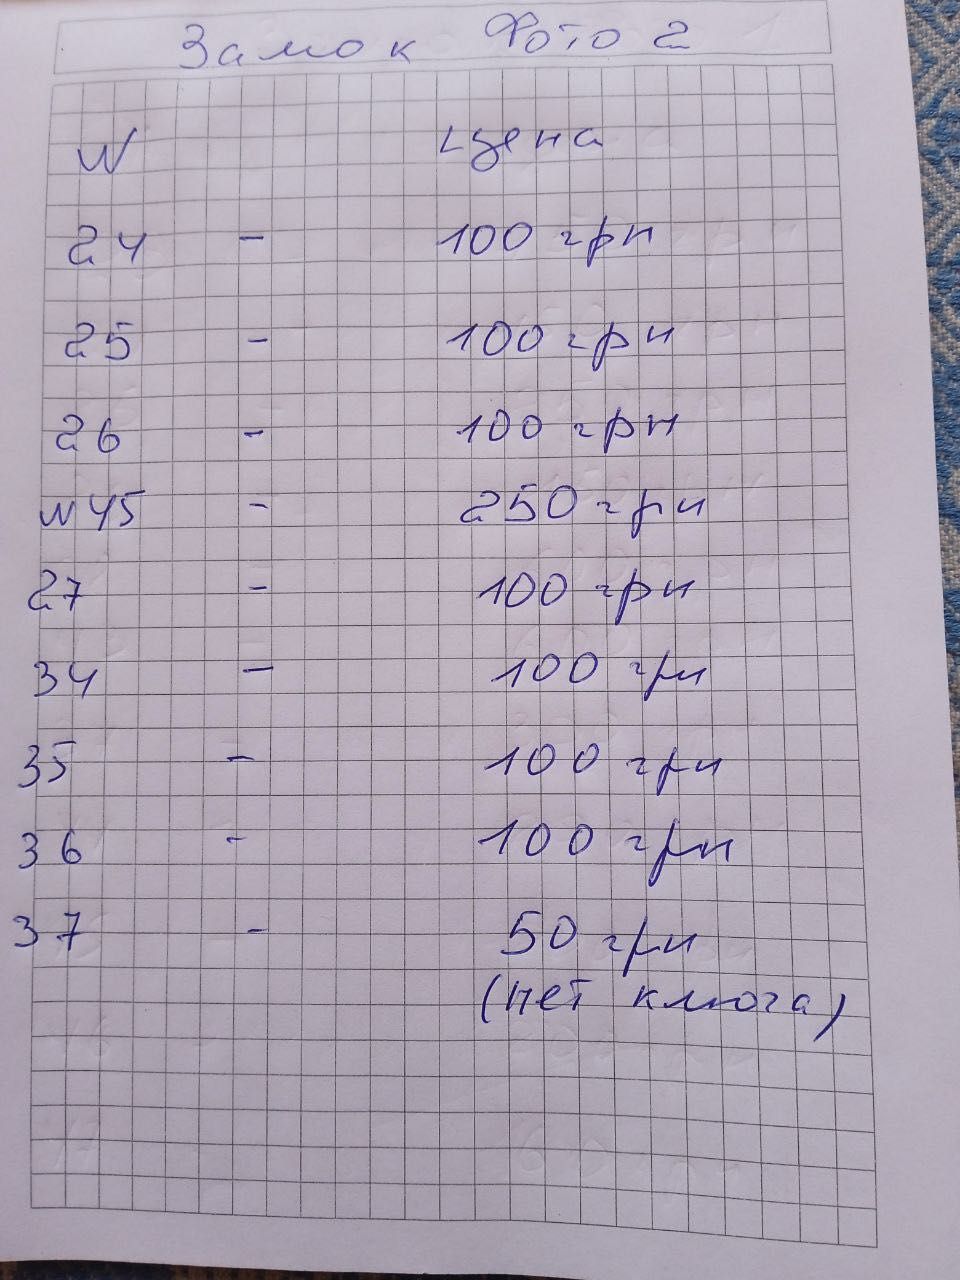 Замок Фото 2
N цена
24 - 100 грн
25 - 100 грн
26 - 100 грн
N 45 - 250 грн
27 - 100 грн
34 - 100 грн
35 - 100 грн
36 - 100 грн
37 - 50 грн
(нет ключа)